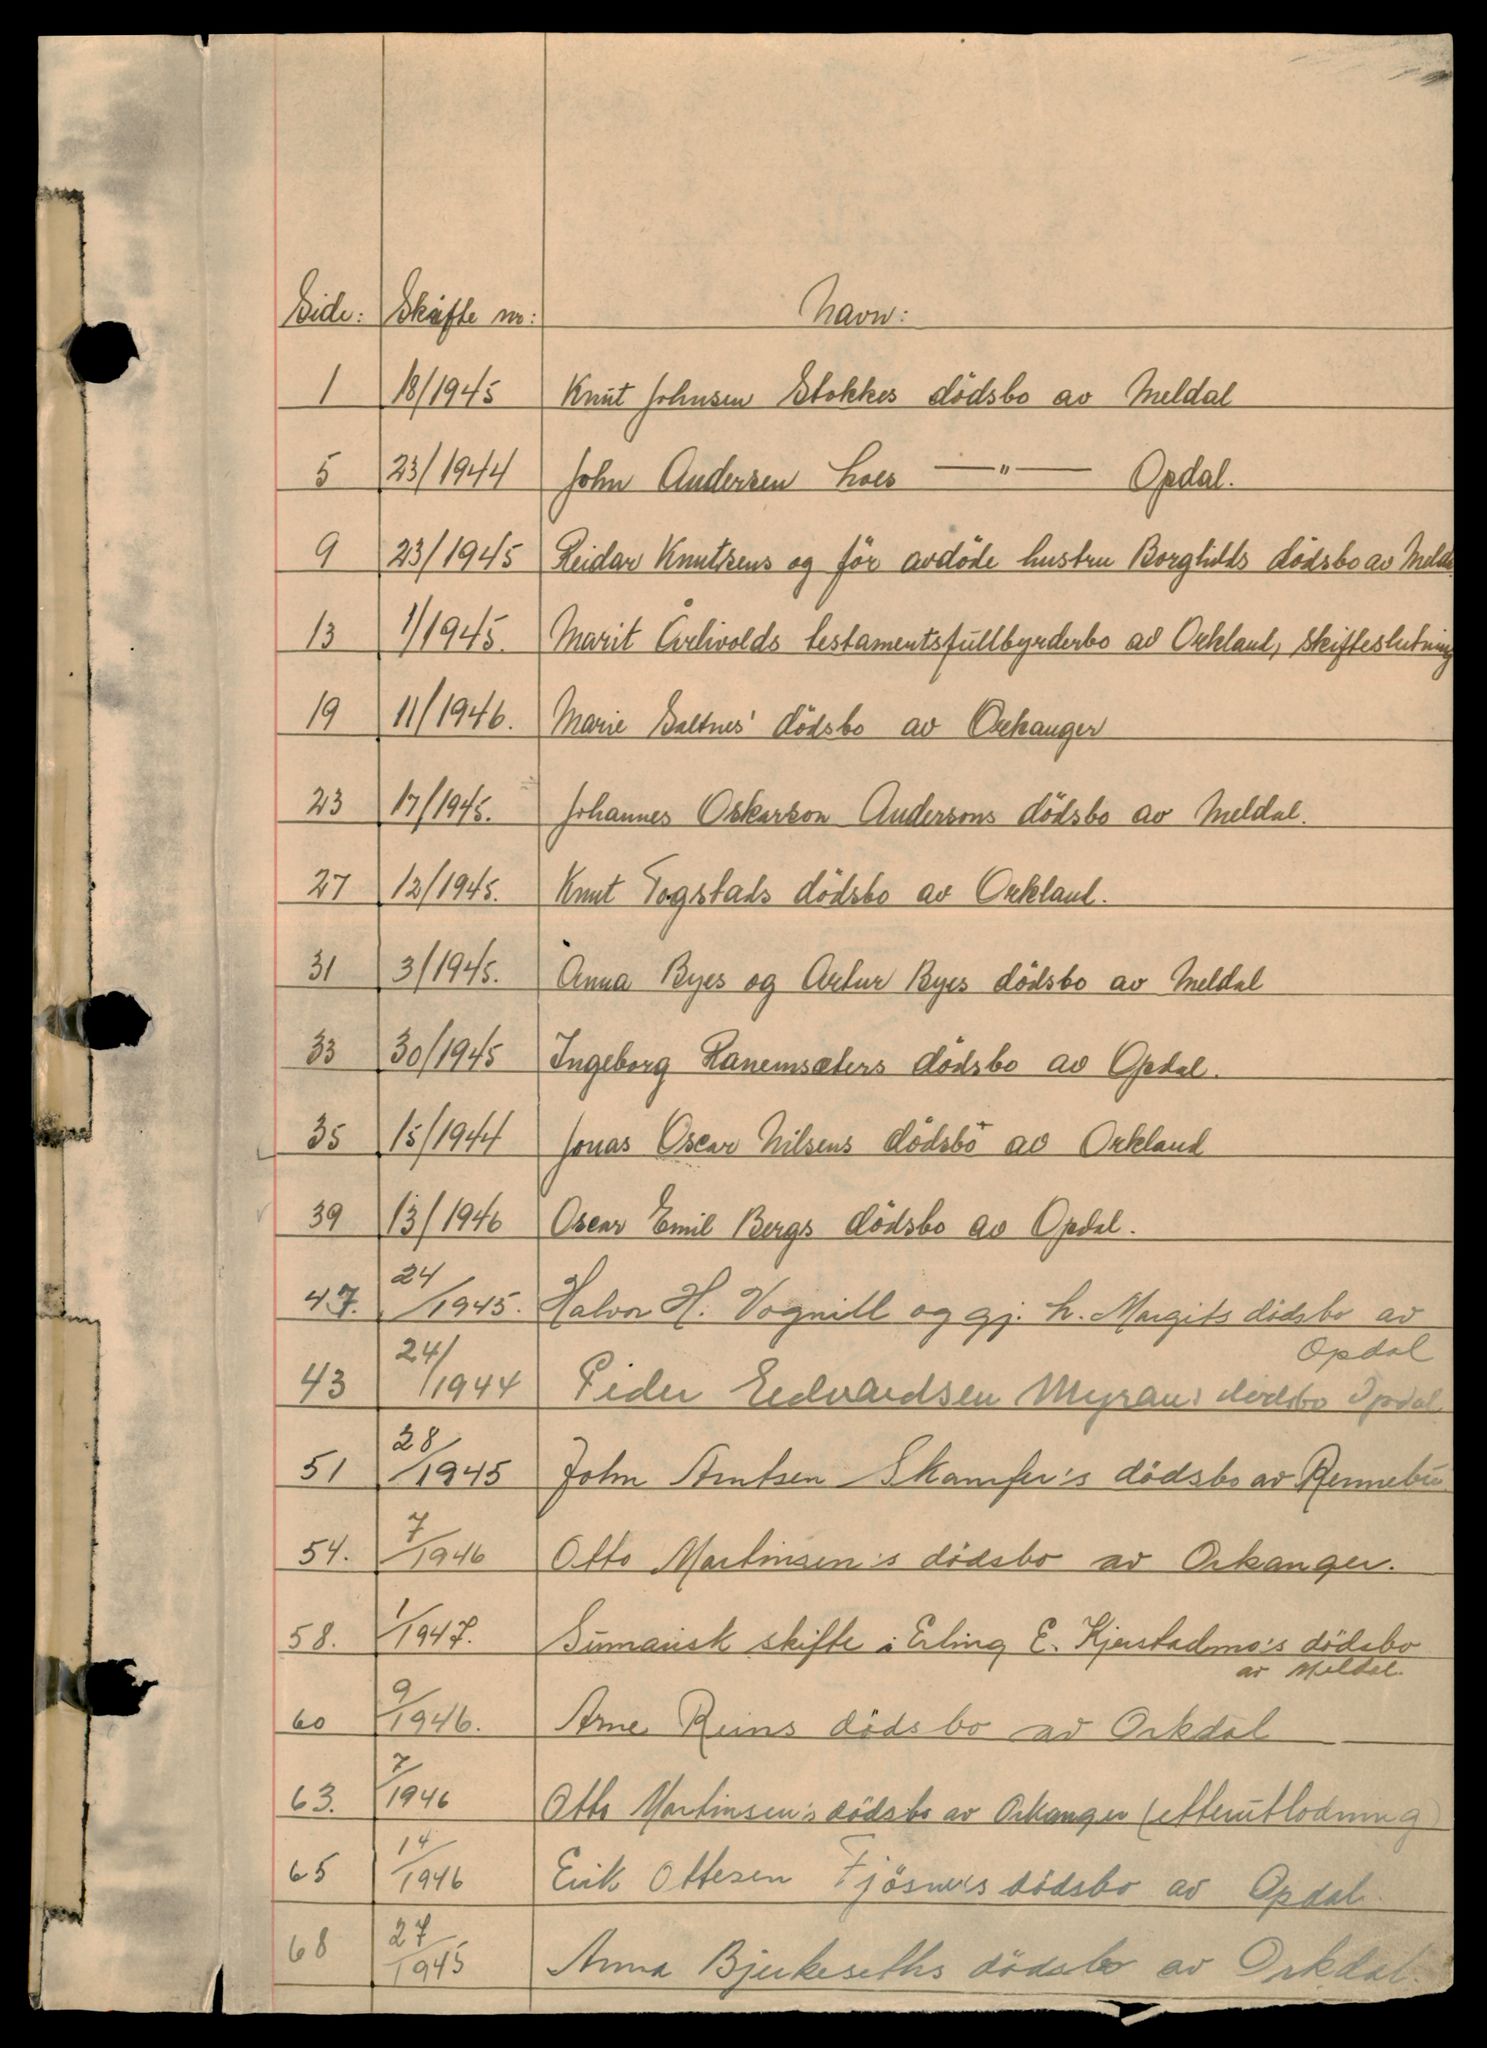 Side: Skifte nr: Navn:
1 18/1945 Knut Johnsen Stokkes dödsbo av Meldal
5 23/1944 John Andersen Loes —„— Opdal.
9 23/1945 Reidar Knutsens og för avdöde hustru Borghilds dödsbo av Meldal
13 1/1945. Marit Årlivolds testamentsfullbyrderbo av Orkland, skifteslutning
19 11/1946. Marie Saltnes' dödsbo av Orkanger
23 17/1945. Johannes Oskarson Andersons dödsbo av Meldal.
27 12/1945. Knut Togstads dödsbo av Orkland.
31 3/1945. Anna Byes og Artur Byes dödsbo av Meldal
33 30/1945 Ingeborg Ranemsæters dödsbo av Opdal.
35 15/1944 Jonas Oscar Nilsens dödsbo av Orkland
39 13/1946 Oscar Emil Bergs dödsbo av Opdal.
47. 24/1945. Halvor H. Vognill og gj. h. Margits dödsbo av
Opdal
43 24/1944 Peder Edvardsen Myrans dödsbo Opdal
51 28/1945 John Arntsen Skamfer's dödsbo av Rennebu.
54. 7/1946 Otto Martinsen's dödsbo av Orkanger.
58. 1/1947. Sumarisk skifte i Erling E. Kjerstadmo's dödsbo
av Meldal.
60 9/1946. Arne Reins dödsbo av Orkdal
63. 7/1946 Otto Martinsen's dödsbo av Orkanger (etterutlodning)
65 14/1946 Erik Ottesen Fjösnes dödsbo av Opdal
68 27/1945 Anna Bjerkeseths dödsbo av Orkdal.